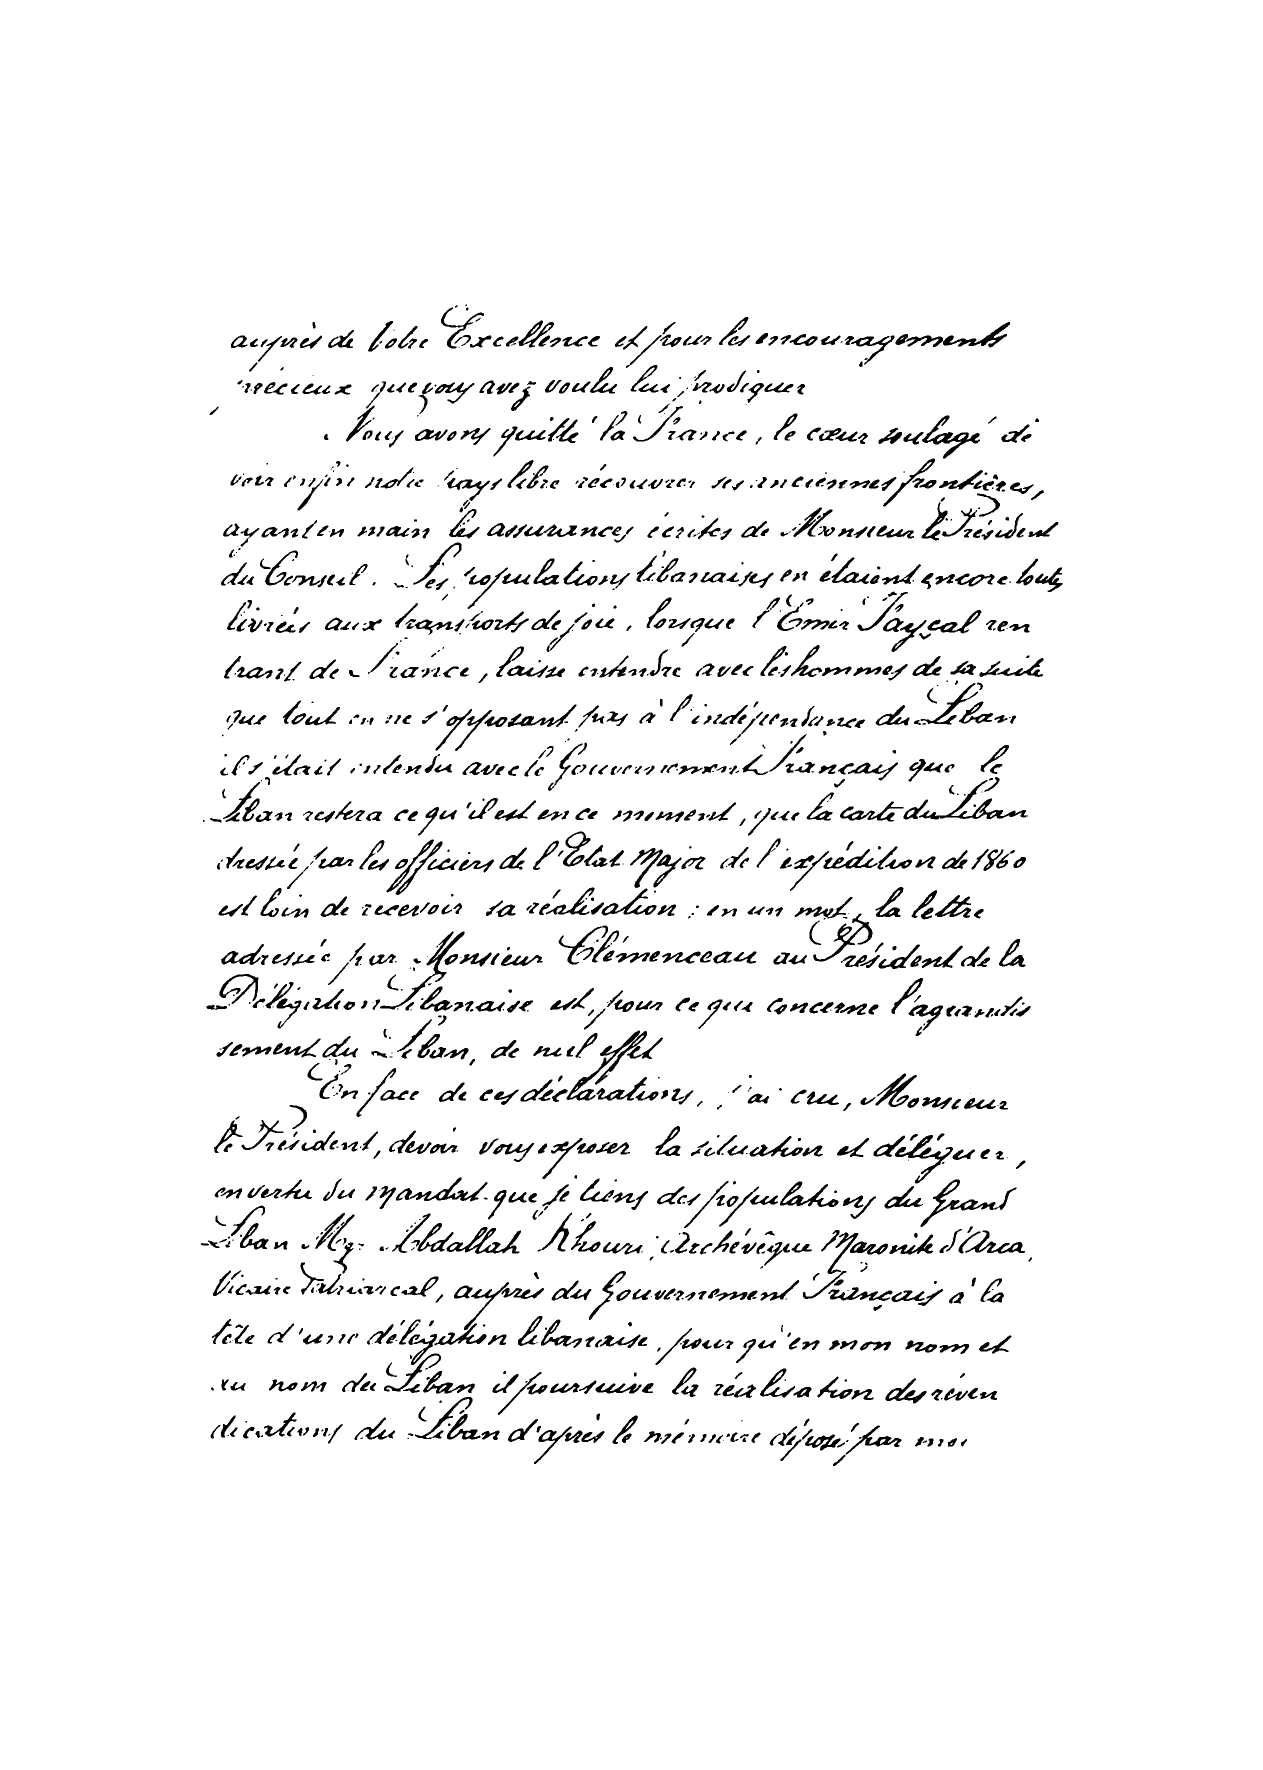 auprès de Votre Excellence et pour les encouragements
précieux que vous avez voulu lui prodiguer
Nous avons quitté la France, le cœur soulagé de
voir enfin notre pays libre récouvrer ses anciennes frontières,
ayant en main les assurances écrites de Monsieur le Président
du Conseil. Les populations libanaises en étaient encore toutes
livrées aux transports de joie, lorsque l'Emir Fayçal ren
trant de France, laisse entendre avec les hommes de sa suite
que tout en ne s'opposant pas à l'indépendance du Liban
il s'était entendu avec le Gouvernement Français que le
Liban restera ce qu'il est en ce moment, que la carte du Liban
dressée par les officiers de l'Etat Major de l'expédition de 1860
est loin de recevoir sa réalisation : en un mot, la lettre
adressée par Monsieur Clémenceau au Président de la
Délégation Libanaise est, pour ce que concerne l'agrandis
sement du Liban, de nul effet
En face de ces déclarations, j'ai cru, Monsieur
le Président, devoir vous exposer la situation et déléguer,
en vertu du mandat que je tiens des populations du Grand
Liban Mgr Abdallah Khouri, Archévêque Maronite d'Arca,
Vicaire Patriarcal, auprès du Gouvernement Français à la
tête d'une délégation libanaise, pour qu'en mon nom et
au nom du Liban il poursuive la réalisation des réven
dications du Liban d'après le mémoire déposé par moi